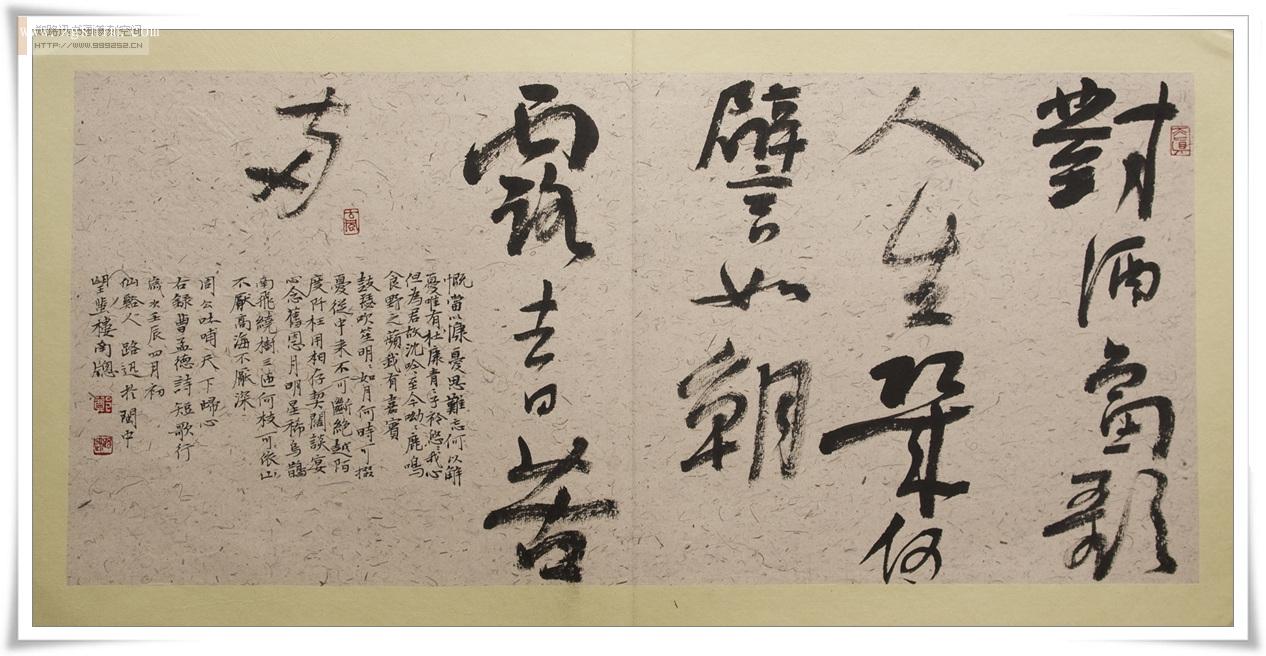 對酒當歌
人生幾何
譬如朝
露去日苦
多
慨當以慷憂思難忘何以解
憂唯有杜康青子衿悠、我心
但為君故沈吟至今呦、鹿鳴
食野之蘋我有嘉賓
鼓瑟吹笙明、如月何時可掇
憂從中来不可斷絶越陌
度阡枉用相存契闊談宴
心念舊恩月明星稀烏鵲
南飛繞樹三匝何枝可依山
不厭高海不厭深
周公吐哺天下歸心
右録曹孟德詩短歌行
歲次壬辰四月初
仙谿人路迅於閩中
望樓南牕
HTTP://WWW.999252.CN